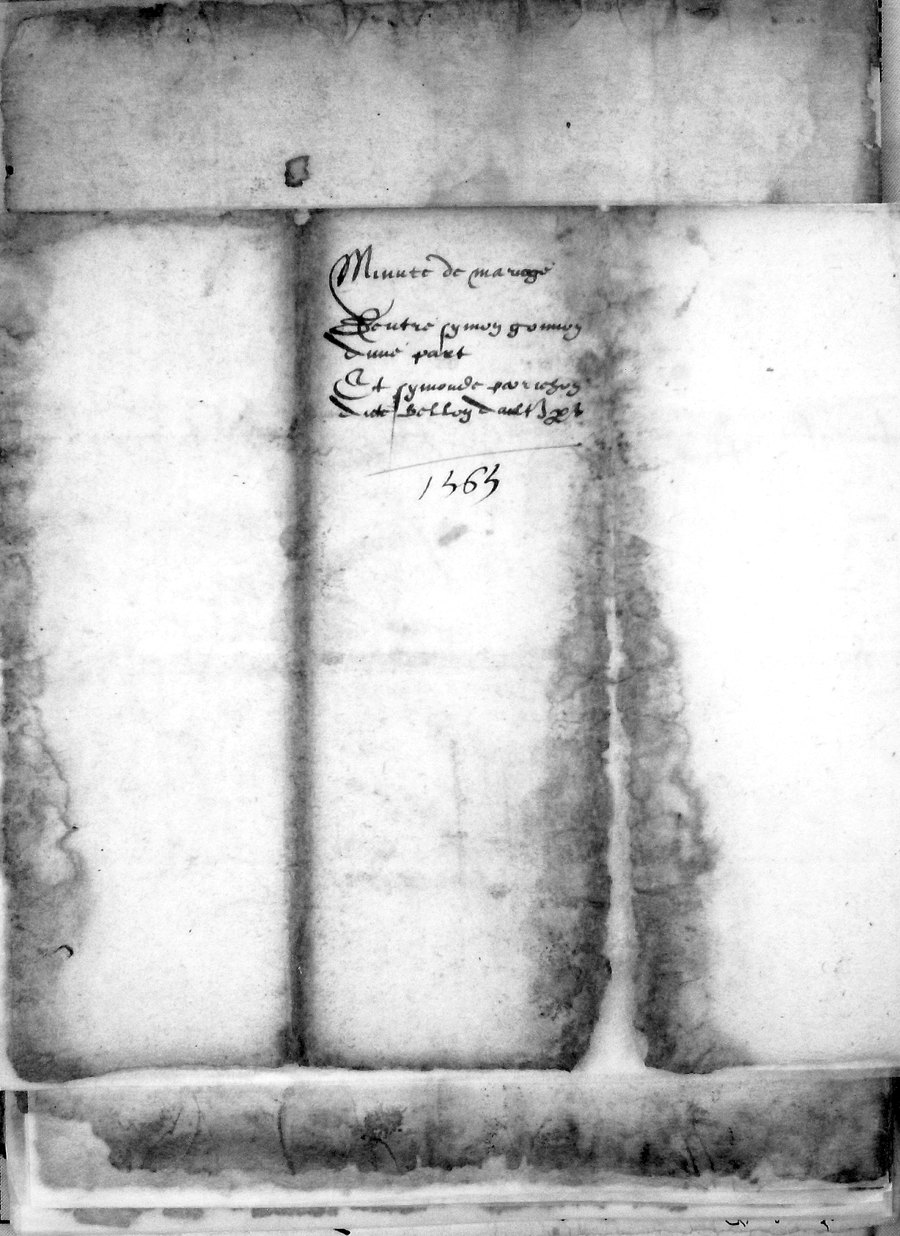 Minute de mariage
Dentre symon gonnon
dune part
Et symonde parichon
dicte Bellon daultre
1563